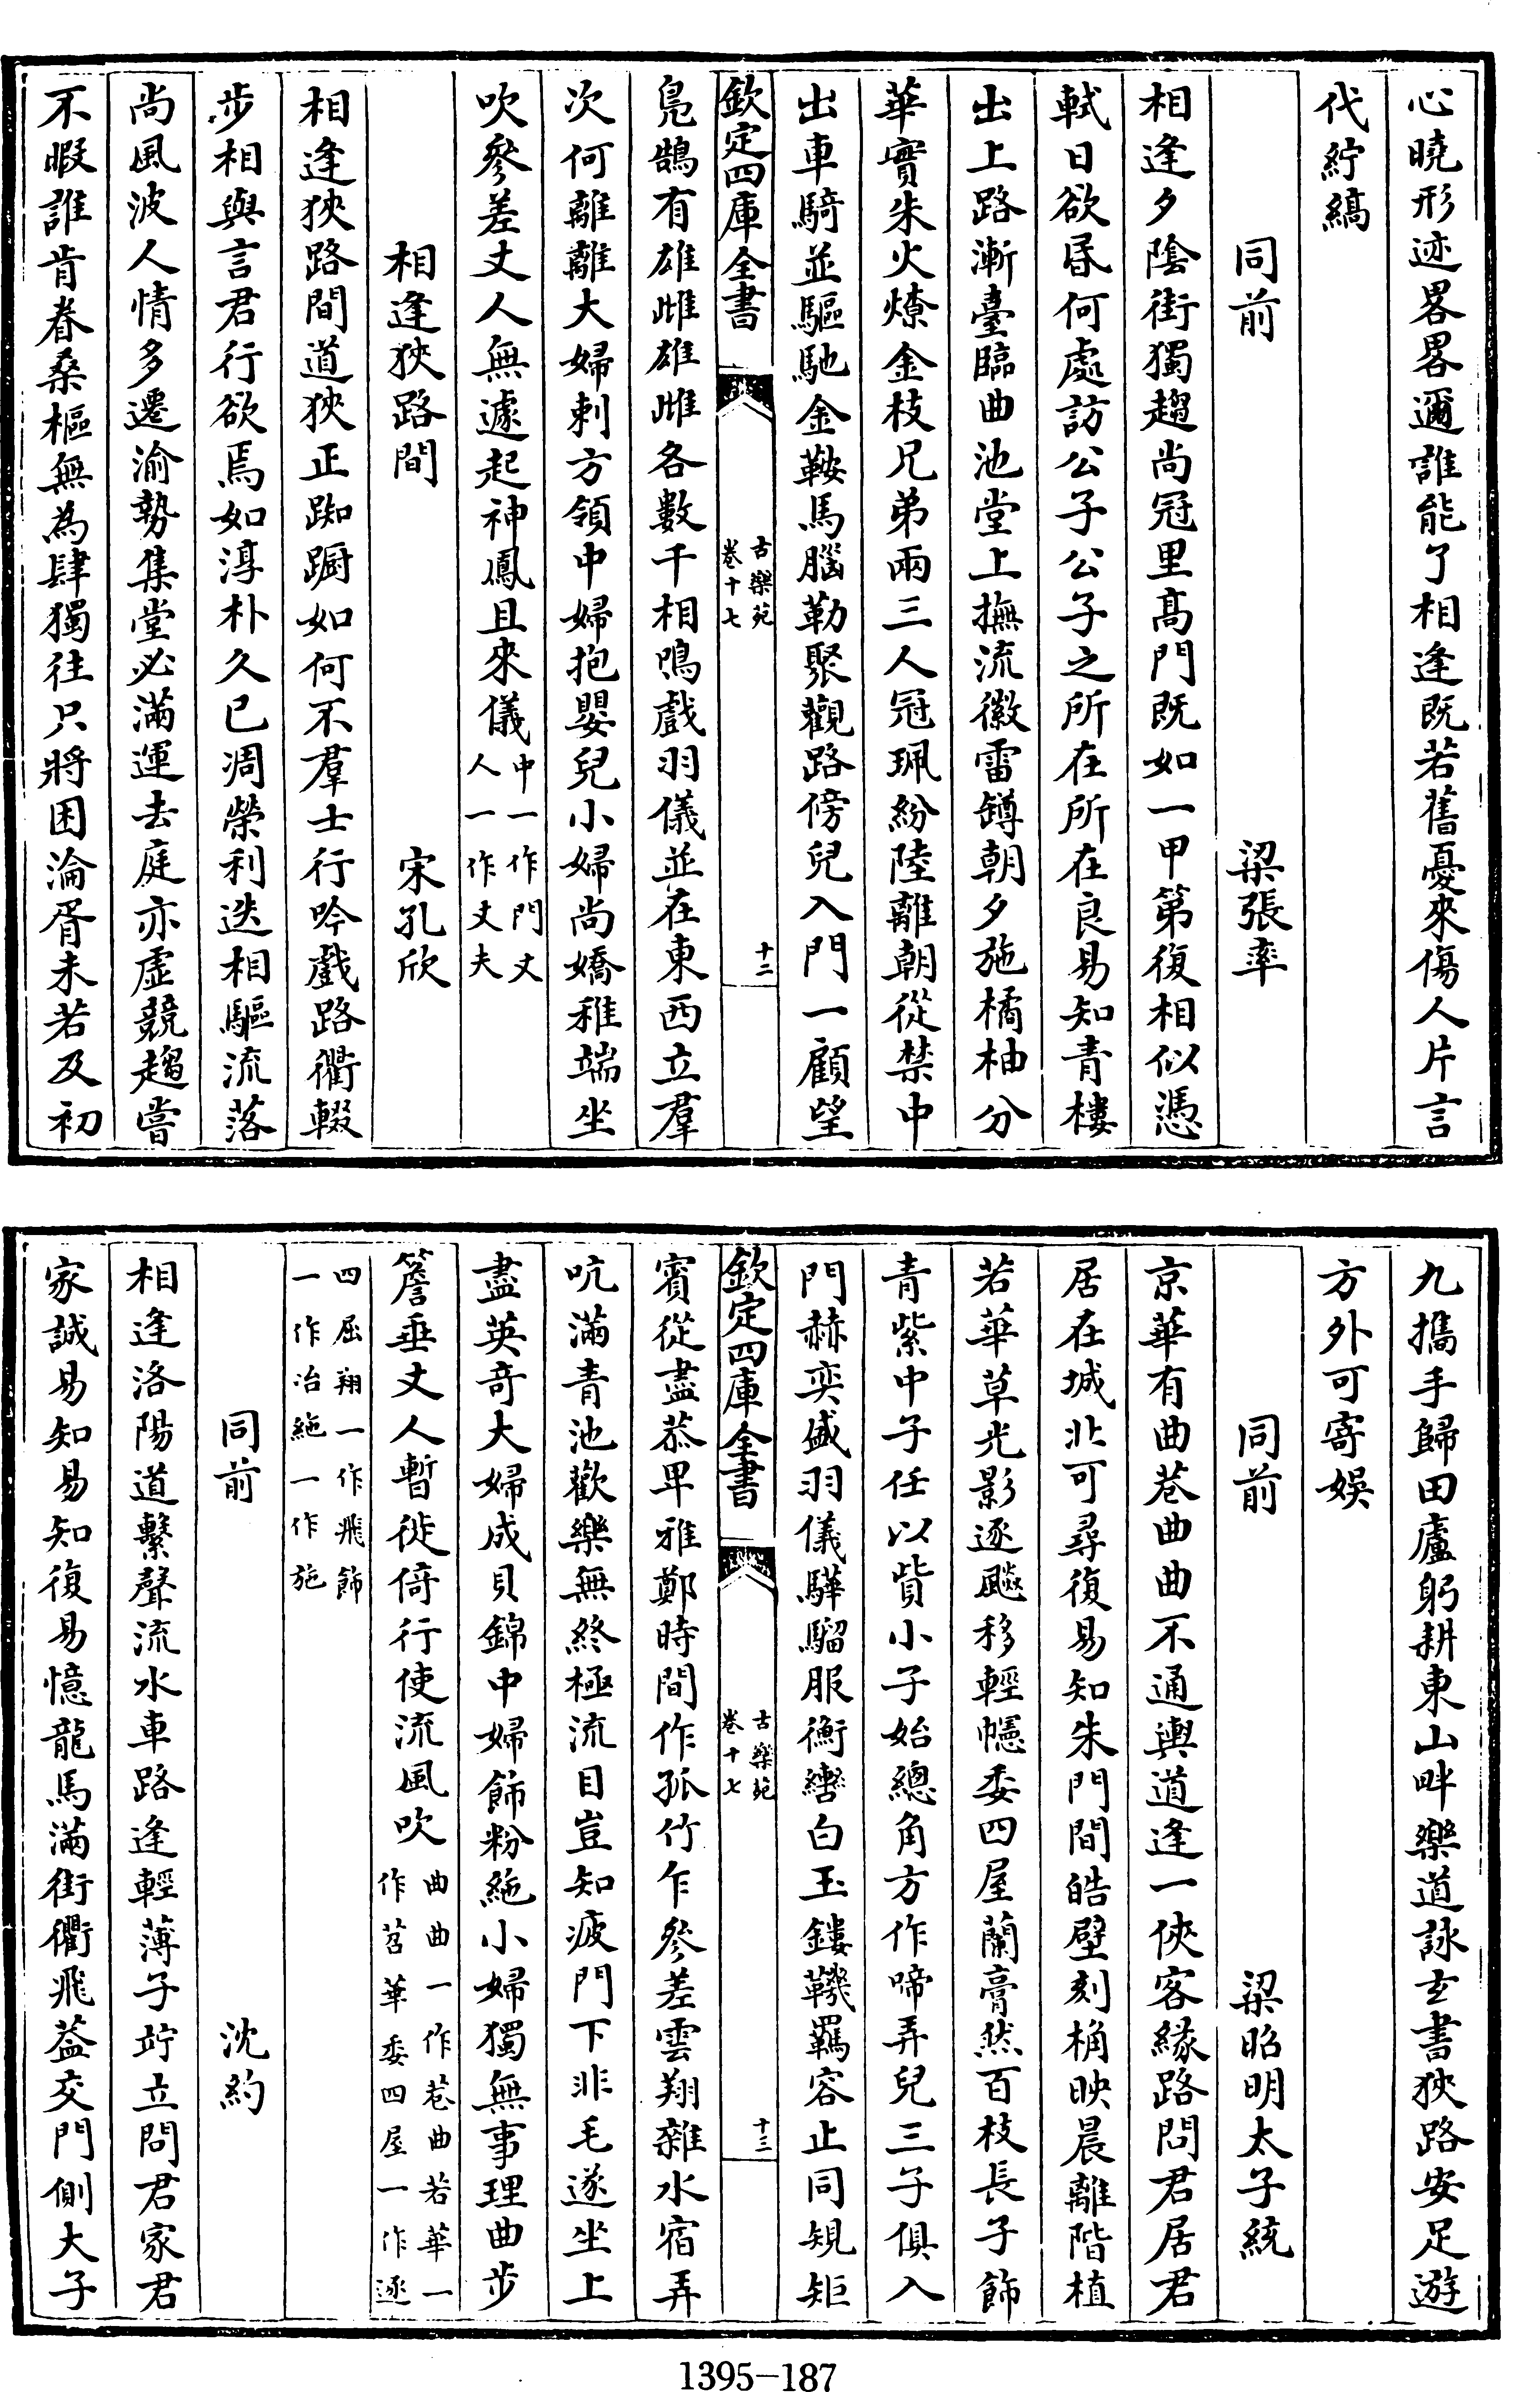 心曉形迹畧畧邇誰能了相逢既若舊憂來傷人片言
代紵縞
同前　梁張率
相逢夕陰街獨趨尚冠里髙門既如一甲第復相似憑
軾日欲昏何處訪公子公子之所在所在良易知青樓
出上路漸臺臨曲池堂上撫流徽雷罇朝夕施橘柚分
華實朱火燎金枝兄弟兩三人冠珮紛陸離朝從禁中
出車騎並驅馳金鞍馬腦勒聚觀路傍兒入門一顧望
欽定四庫全書　古樂苑　卷十七　十二
鳧鵠有雄雌雄雌各數千相鳴戲羽儀並在東西立羣
次何離離大婦刺方領中婦抱嬰兒小婦尚嬌稚端坐
吹參差丈人無遽起神鳳且來儀中一作門丈人一作丈夫
相逢狹路間　宋孔欣
相逢狹路間道狹正踟蹰如何不羣士行吟戲路衢輟
步相與言君行欲焉如淳朴久已凋榮利迭相驅流落
尚風波人情多遷渝勢集堂必滿運去庭亦虛競趨嘗
不暇誰肯眷桑樞無為肆獨往只將困淪胥未若及初
九攜手歸田廬躬耕東山畔樂道詠玄書狹路安足遊
方外可寄娛
同前　梁昭明太子統
京華有曲巷曲曲不通輿道逢一俠客緣路問君居君
居在城北可尋復易知朱門間皓壁刻桷映晨離階植
若華草光影逐飈移輕幰委四屋蘭膏然百枝長子飾
青紫中子任以貲小子始總角方作啼弄兒三子俱入
門赫奕盛羽儀驊騮服衡轡白玉鏤鞿羈容止同規矩
欽定四庫全書　古樂苑　卷十七　十三
賓從盡恭卑雅鄭時間作孤竹乍參差雲翔雜水宿弄
吭滿青池歡樂無終極流目豈知疲門下非毛遂坐上
盡英竒大婦成貝錦中婦飾粉絁小婦獨無事理曲步
簷垂丈人暫徙倚行使流風吹曲曲一作巷曲若華一作苕華委四屋一作逐
四屈翔一作飛飾一作冶絁一作施
同前　沈約
相逢洛陽道繫聲流水車路逢輕薄子竚立問君家君
家誠易知易知復易憶龍馬滿街衢飛葢交門側大子
1395-187